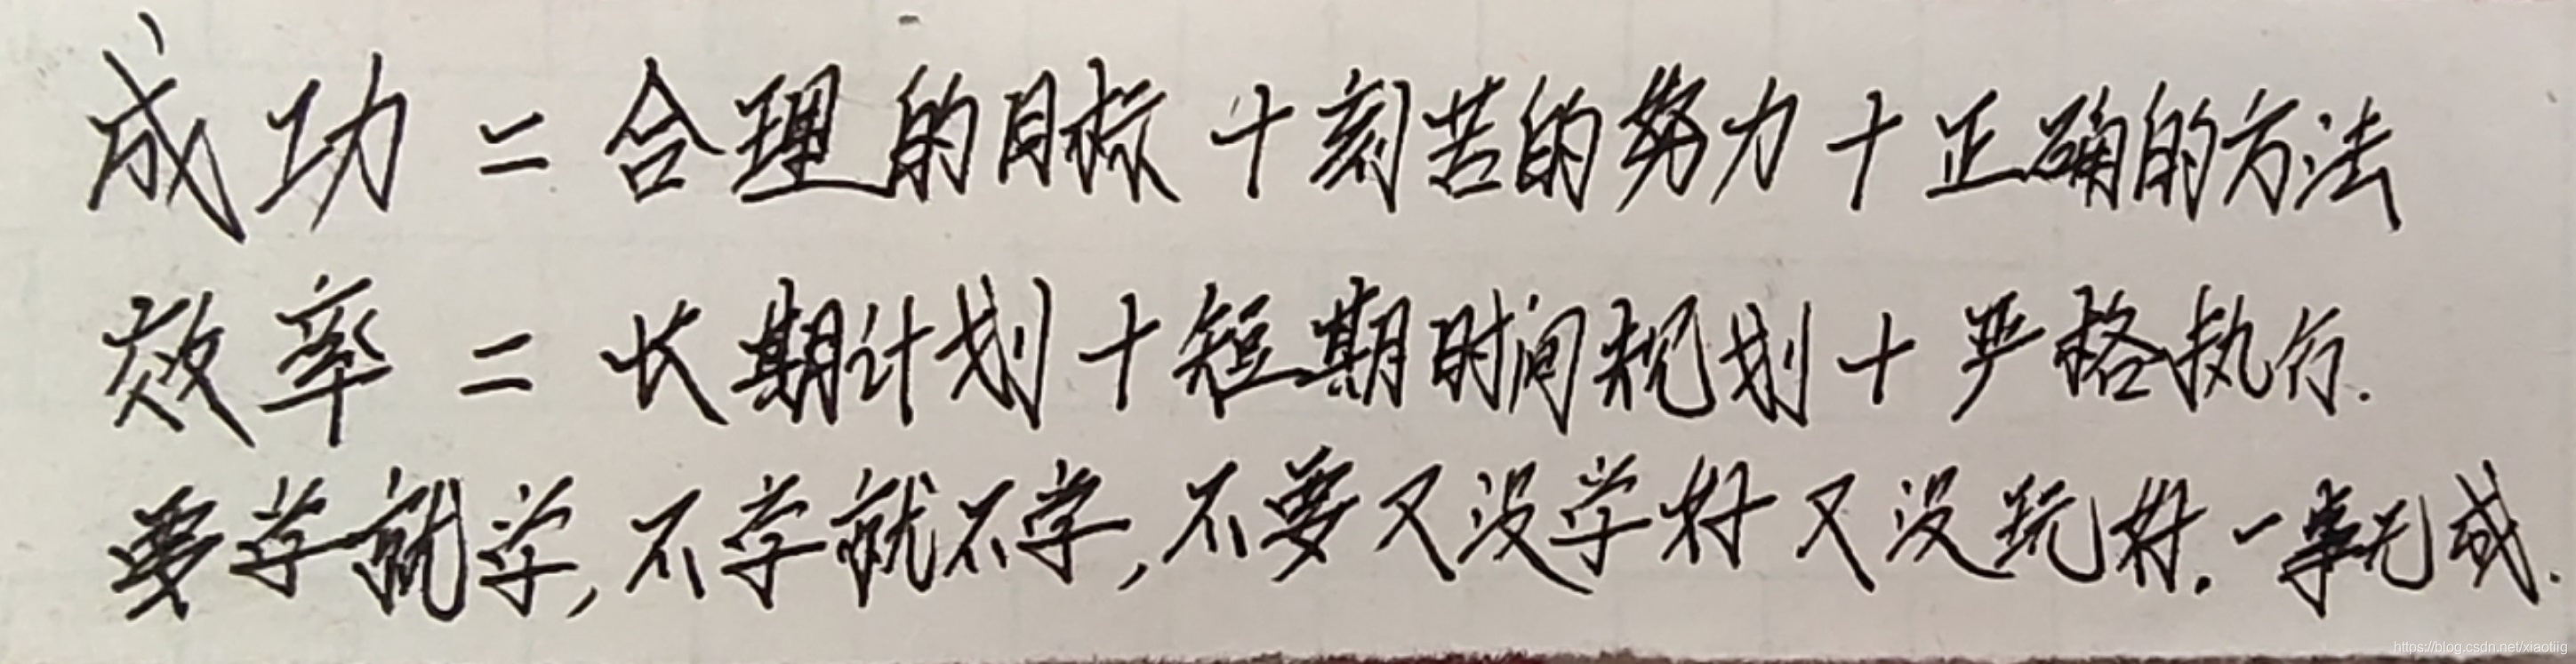 成功=合理的目标+刻苦的努力+正确的方法
效率=长期计划+短期时间规划+严格执行.
要学就学,不学就不学,不要又没学好又没玩好.一事无成.
https://blog.csdn.net/xiaotiig